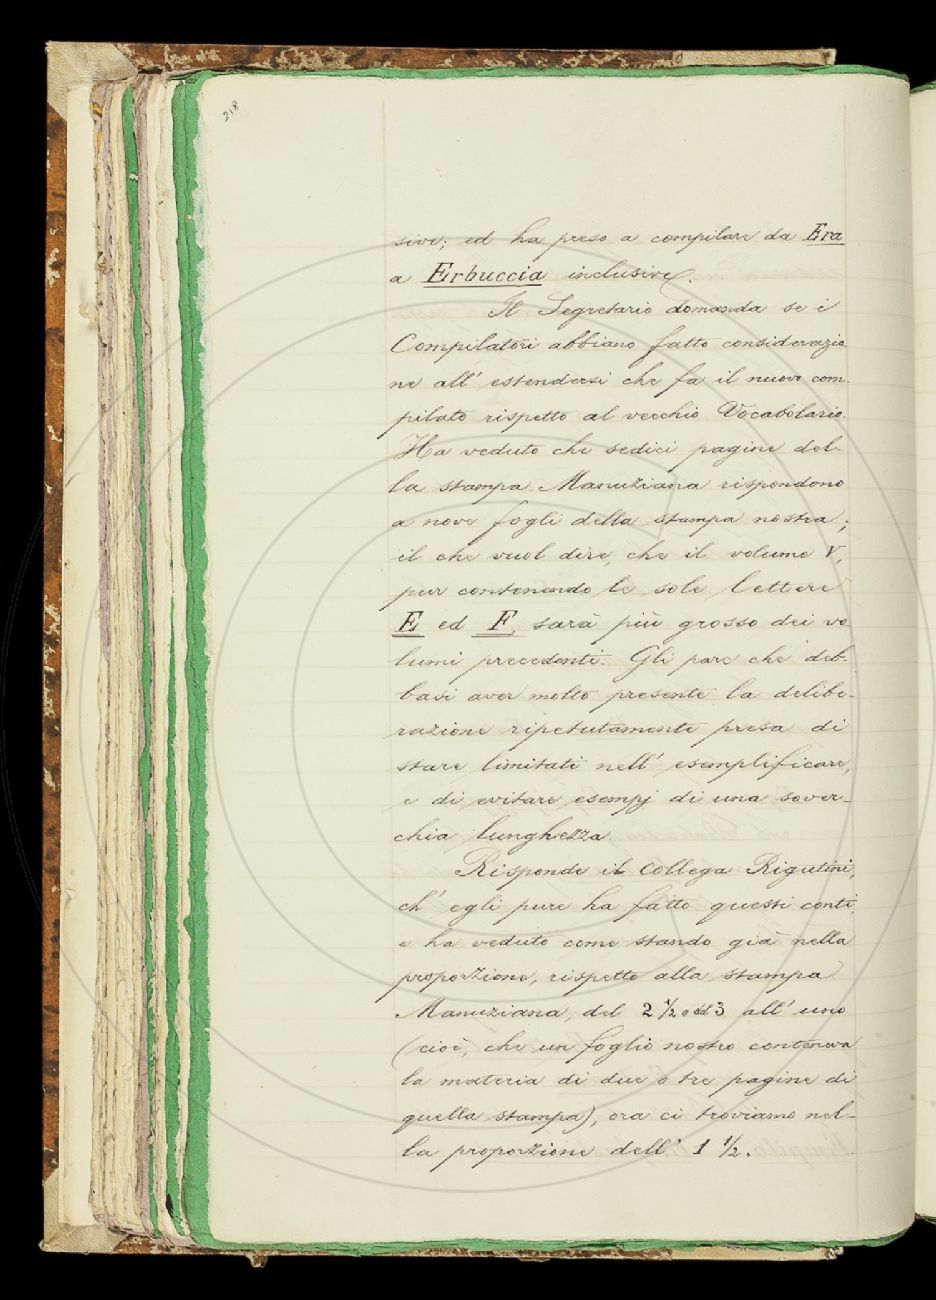 218
sive; ed ha preso a compilare da Era
a Erbuccia inclusive.
Il Segretario domanda se i
Compilatori abbiano fatto considerazio
ne all' estendersi che fa il nuovo com
pilato rispetto al vecchio Vocabolario.
Ha veduto che sedici pagine del-
la stampa Manuziana rispondono
a nove fogli della stampa nostra;
il che vuol dire, che il volume V,
pur contenendo le sole lettere
E ed F, sarà più grosso dei vo
lumi precedenti. Gli pare che deb-
basi aver molto presente la delibe-
razione ripetutamente presa di
stare limitati nell' esemplificare,
e di evitare esempj di una sover-
chia lunghezza.
Risponde il Collega Rigutini,
ch' egli pure ha fatto questi conti,
e ha veduto come stando già nella
proporzione, rispetto alla stampa
Manuziana, del 2 1/2 o del 3 all' uno
(cioè, che un foglio nostro conteneva
la materia di due o tre pagine di
quella stampa), ora ci troviamo nel-
la proporzione dell' 1 1/2.